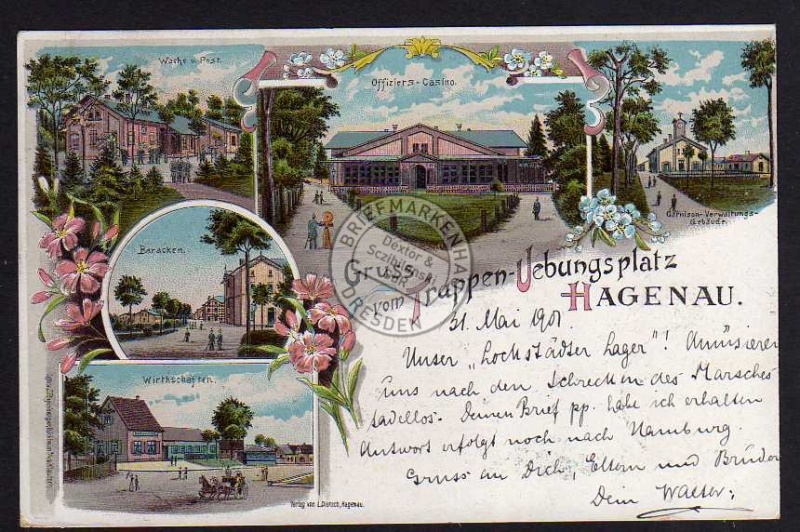 Wache u. Post.
Offiziers-Casino.
Garnison-Verwaltungs-
Gebäude.
Baracken.
Wirthschaften.
Gruss
vom Truppen-Uebungsplatz
HAGENAU.
BRIEFMARKENHAUS
Dextor &
GbR
DRESDEN
31. Mai 1901
Unser „Lockstädter Lager"! Amüsieren
uns nach den Schrecken des Marsches
tadellos. Deinen Brief pp. habe ich erhalten
Antwort erfolgt noch nach Hamburg.
Gruss an Dich, Eltern und Brüder
Dein Walter.
Verlag von L. Dietsch, Hagenau.